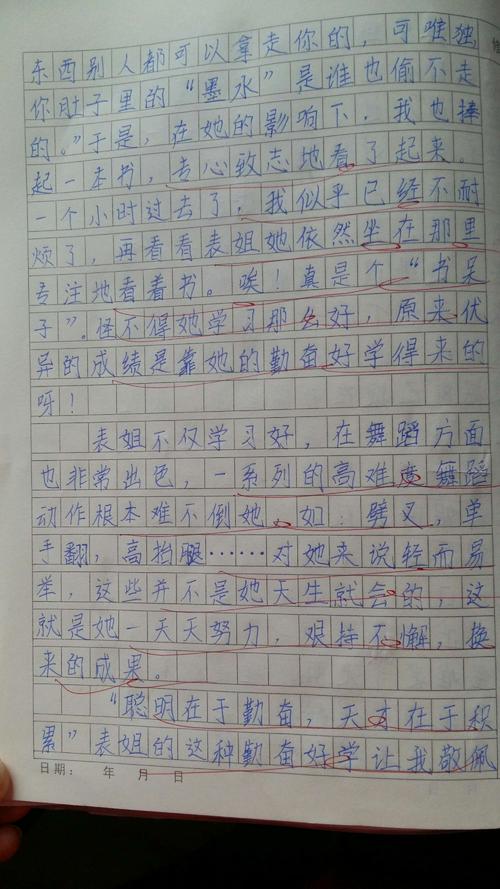 东西别人都可以拿走你的，可唯独
你肚子里的“墨水”是谁也偷不走
的。”于是，在她的影响下，我也捧
起一本书，专心致志地看了起来。
一个小时过去了，我似乎已经不耐
烦了，再看看表姐她依然坐在那里
专注地看着书。唉！真是个“书呆
子”。怪不得她学习那么好，原来优
异的成绩是靠她的勤奋好学得来的
呀！
表姐不仅学习好，在舞蹈方面
也非常出色，一系列的高难度舞蹈
动作根本难不倒她。如：劈叉，单
手翻，高抬腿……对她来说轻而易
举，这些并不是她天生就会的，这
就是她一天天努力，艰持不懈，换
来的成果。
“聪明在于勤奋，天才在于积
累”表姐的这种勤奋好学让我敬佩
日期： 年 月 日